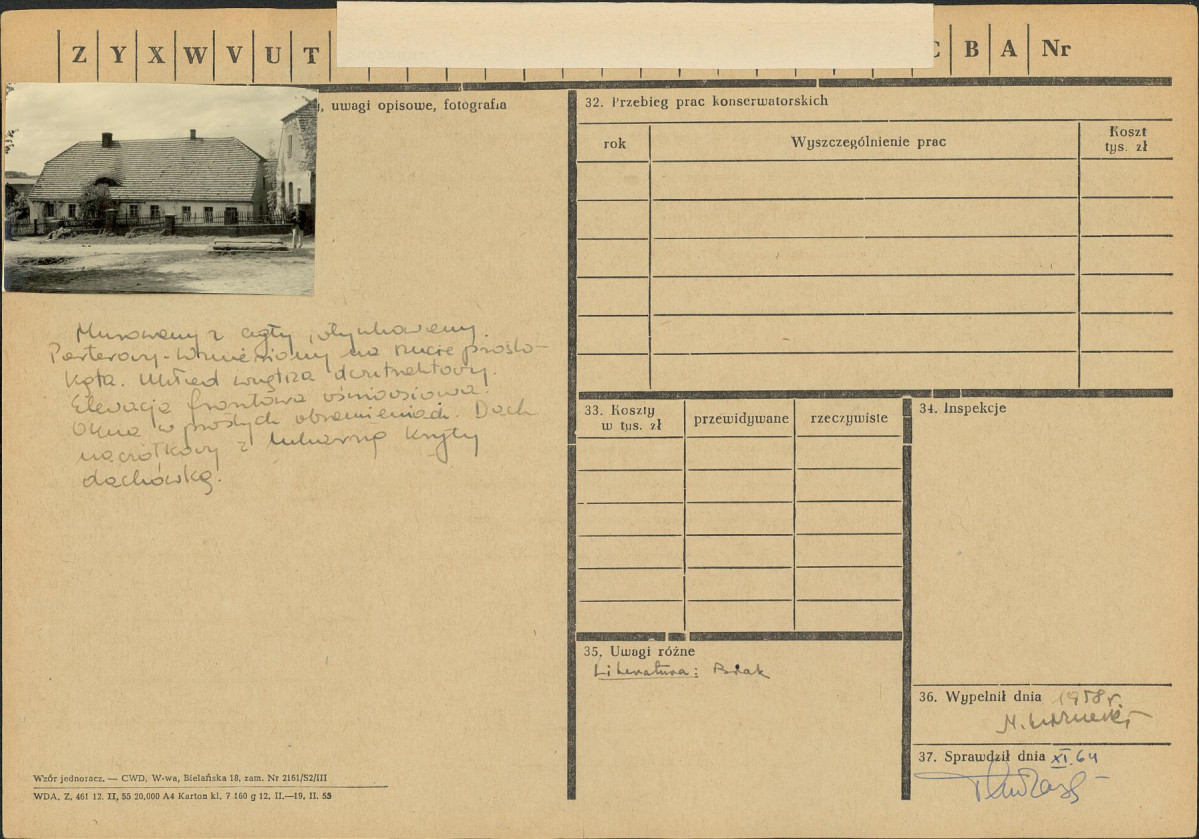 Z Y X W V U T C B A Nr
, uwagi opisowe, fotografia
Murowany z cegły, otynkowany.
Parterowy. Wzniesiony na rzucie prosto-
kąta. Układ wnętrza dwutraktowy.
Elewacja frontowa ośmiosiowa.
Okna w prostych obramieniach. Dach
naczółkowy z lukarną kryty
dachówką.
32. Przebieg prac konserwatorskich
rok Wyszczególnienie prac Koszt
tys. zł
33. Koszty
w tys. zł przewidywane rzeczywiste
34. Inspekcje
35. Uwagi różne
Literatura: Brak
36. Wypełnił dnia 1958 r.
37. Sprawdził dnia XI.64
Wzór jednoracz. — CWD, W-wa, Bielańska 18, zam. Nr 2161/S2/III
WDA. Z. 461 12. II, 55 20.000 A4 Karton kl. 7 160 g 12. II.—19. II. 55